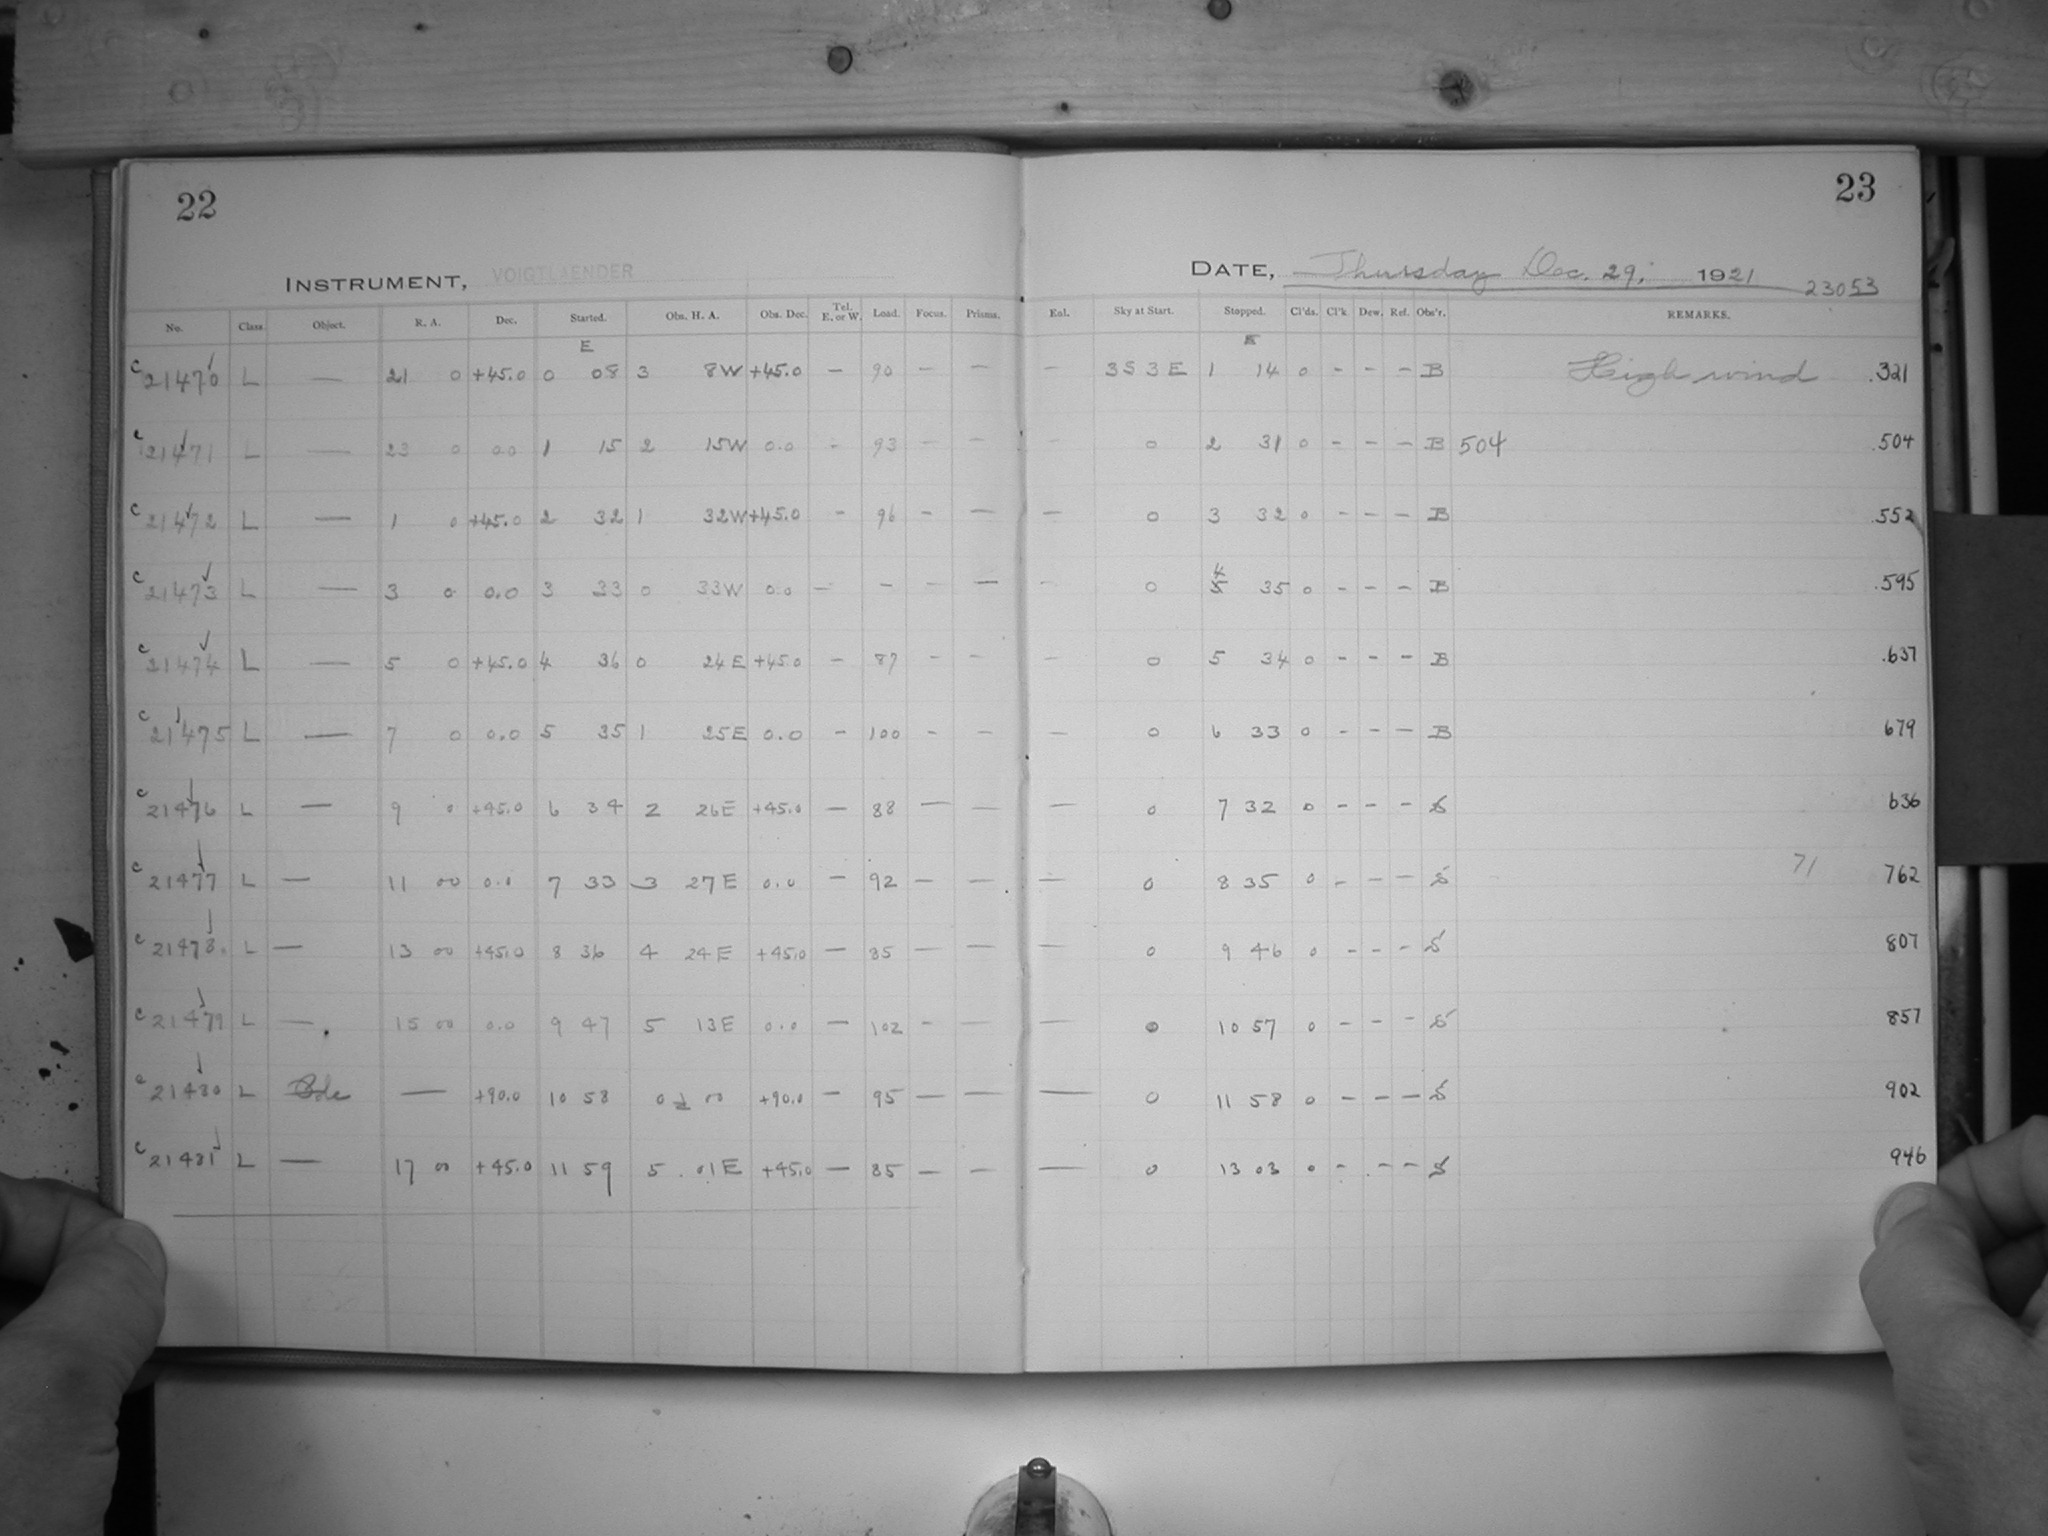 22
23
INSTRUMENT, VOIGTLAENDER
DATE, Thursday Dec. 29, 1921 23053
No. Class. Object. R. A. Dec. Started. Obs. H. A. Obs. Dec. Tel. E. or W. Load. Focus. Prisms. Eol. Sky at Start. Stopped. Cl'ds. Cl'k Dew. Ref. Obs'r. REMARKS.
E
C 21470 L — 21 0 +45.0 0 08 3 8W +45.0 — 90 — — — 353E 1 14 0 - - - B High wind .321
C 21471 L — 23 0 0.0 1 15 2 15W 0.0 - 93 - - - 0 2 31 0 - - - B 504 .504
C 21472 L — 1 0 +45.0 2 32 1 32W +45.0 - 96 - — — 0 3 32 0 - - - B .552
C 21473 L — 3 0 0.0 3 33 0 33W 0.0 — - - — - 0 4 35 0 - - - B .595
C 21474 L — 5 0 +45.0 4 36 0 24E +45.0 - 87 - - - 0 5 34 0 - - - B .637
C 21475 L — 7 0 0.0 5 35 1 25E 0.0 - 100 - - — 0 6 33 0 - - - B 679
C 21476 L — 9 0 +45.0 6 34 2 26E +45.0 — 88 — — — 0 7 32 0 - - - S 636
C 21477 L — 11 00 0.0 7 33 3 27E 0.0 — 92 — — — 0 8 35 0 - - - S 71 762
C 21478. L — 13 00 +45.0 8 36 4 24E +45.0 — 85 — — — 0 9 46 0 - - - S 807
C 21479 L — 15 00 0.0 9 47 5 13E 0.0 — 102 - — — 0 10 57 0 - - - S 857
C 21480 L — +90.0 10 58 0 00 +90.0 — 95 — — — 0 11 58 0 - - - S 902
C 21481 L — 17 00 +45.0 11 59 5 01E +45.0 — 85 — — — 0 13 03 0 - - - S 946